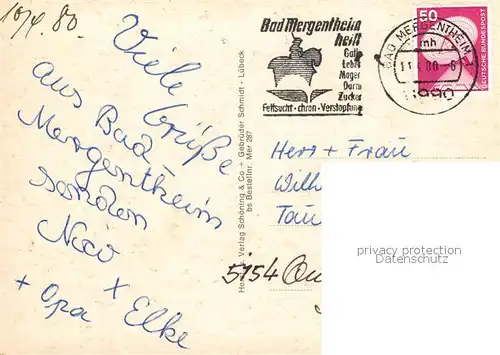 10/4. 80.
Viele Grüße
aus Bad-
Mergentheim
senden
Nico
+ Opa + Elke
Herst. u. Verlag Schöning & Co + Gebrüder Schmidt · Lübeck
bs Bestellnr. Mer 287
Bad Mergentheim
heilt
Galle
Leber
Magen
Darm
Zucker
Fettsucht · chron · Verstopfung
BAD MERGENTHEIM
mh
80 - 8
6990
50
DEUTSCHE BUNDESPOST
Herr + Frau
Wilh
Tau
privacy protection
Datenschutz